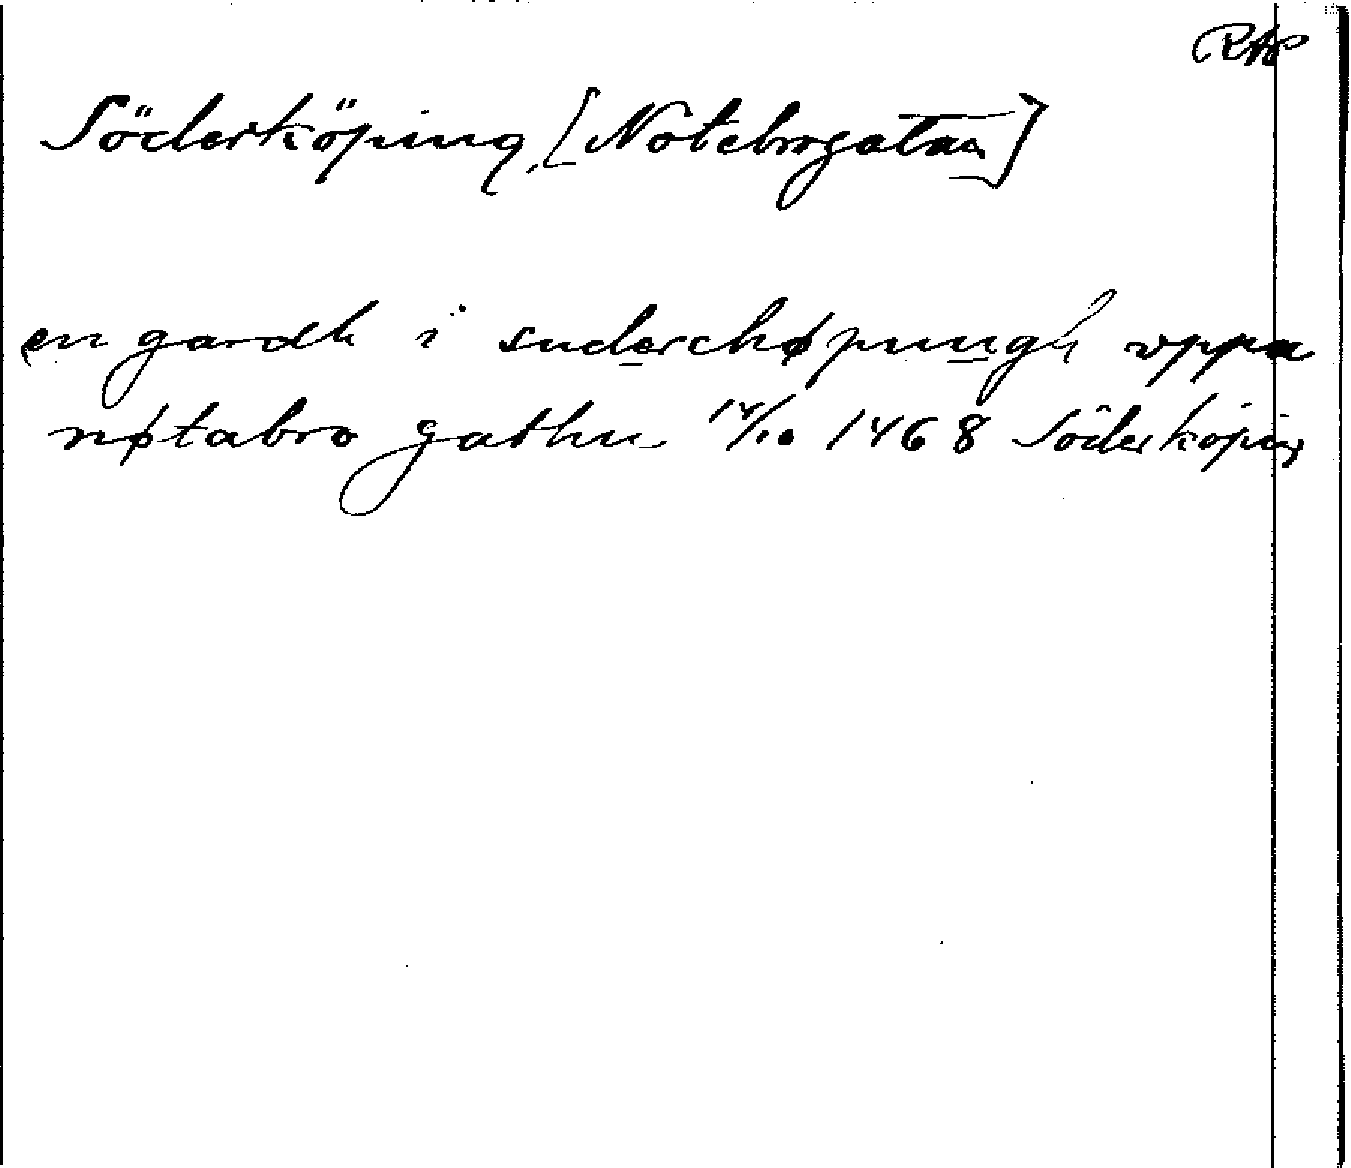 RAP
Söderköping, [Notebrogatan]
en gardh i suderchøpungh vppa
nøtabro gathu 14/10 1468 Söderköping